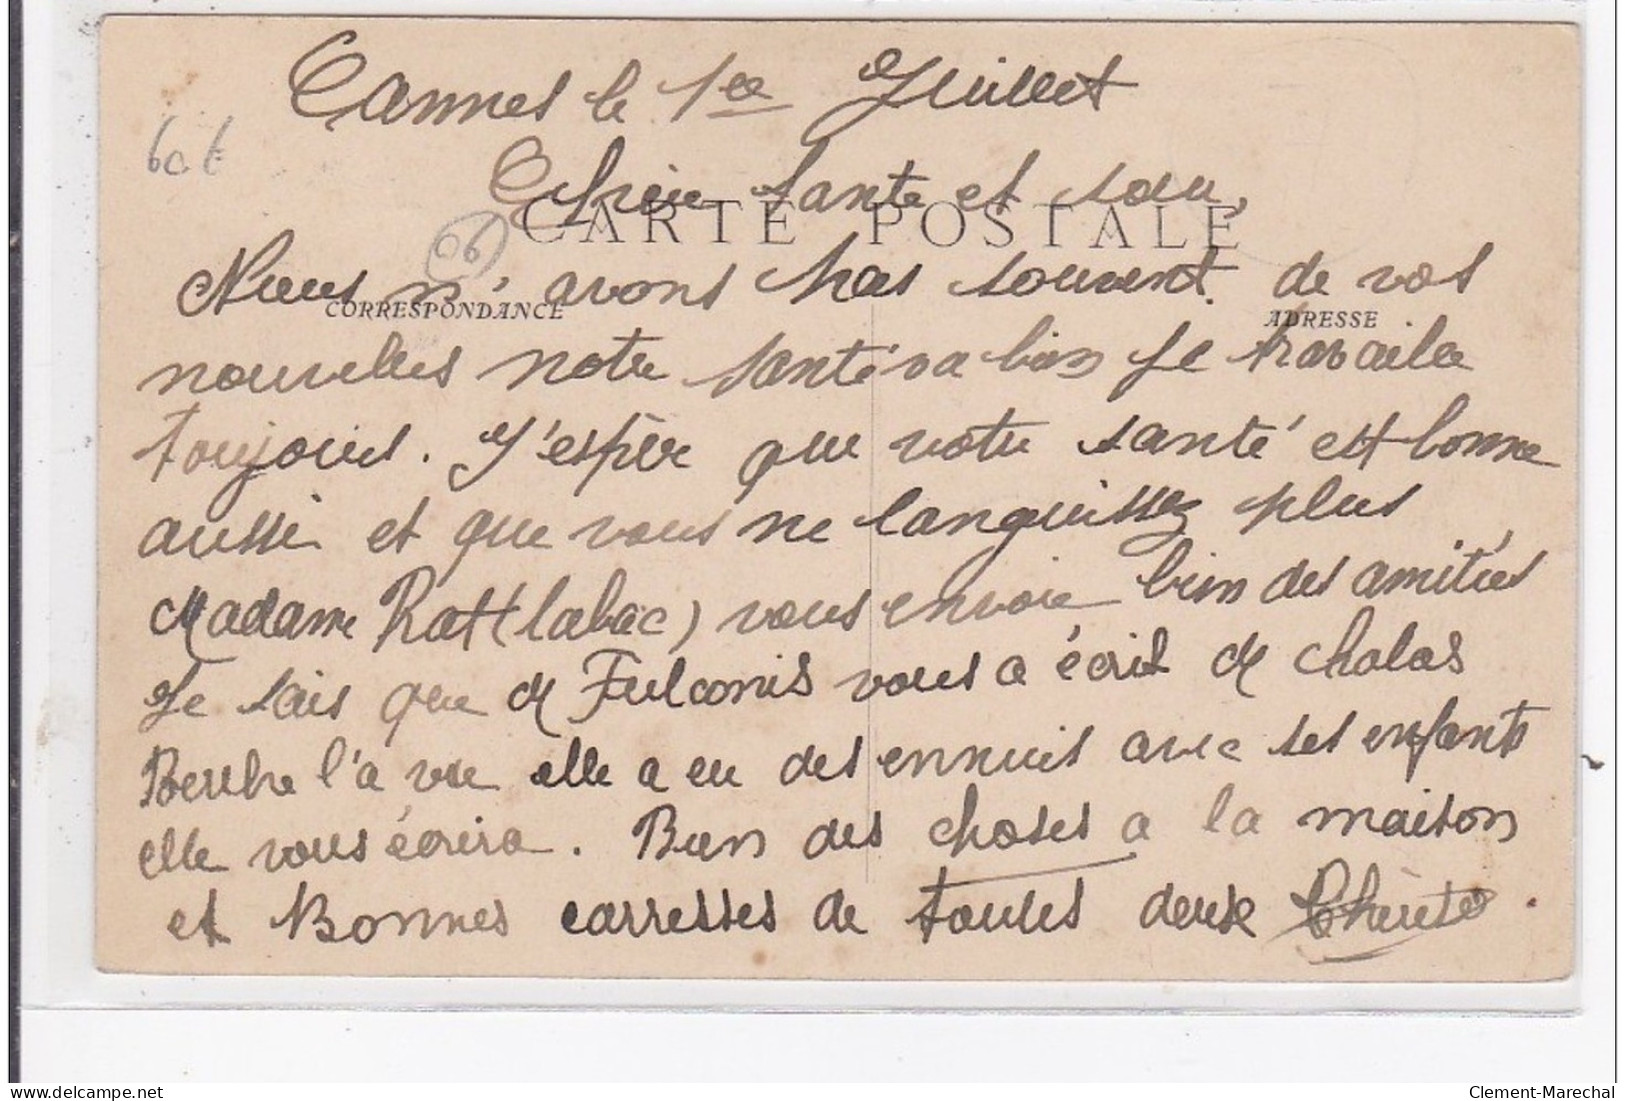 Cannes le 1er Juillet
60 €
Chère tante et
CARTE POSTALE
06
Nous n'avons pas souvent de vos
CORRESPONDANCE
ADRESSE
nouvelles notre santé va bien Je travaile
toujours. J'espère que votre santé est bonne
aussi et que vous ne languissez plus
Madame Rat (tabac) vous envoie bien des amitiés
Je sais que M Fulconis vous a écrit M Chalas
Berthe l'a vue elle a eu des ennuis avec ses enfants
elle vous écrira. Bien des choses a la maison
et Bonnes carresses de toutes deux
Clement-Marechal